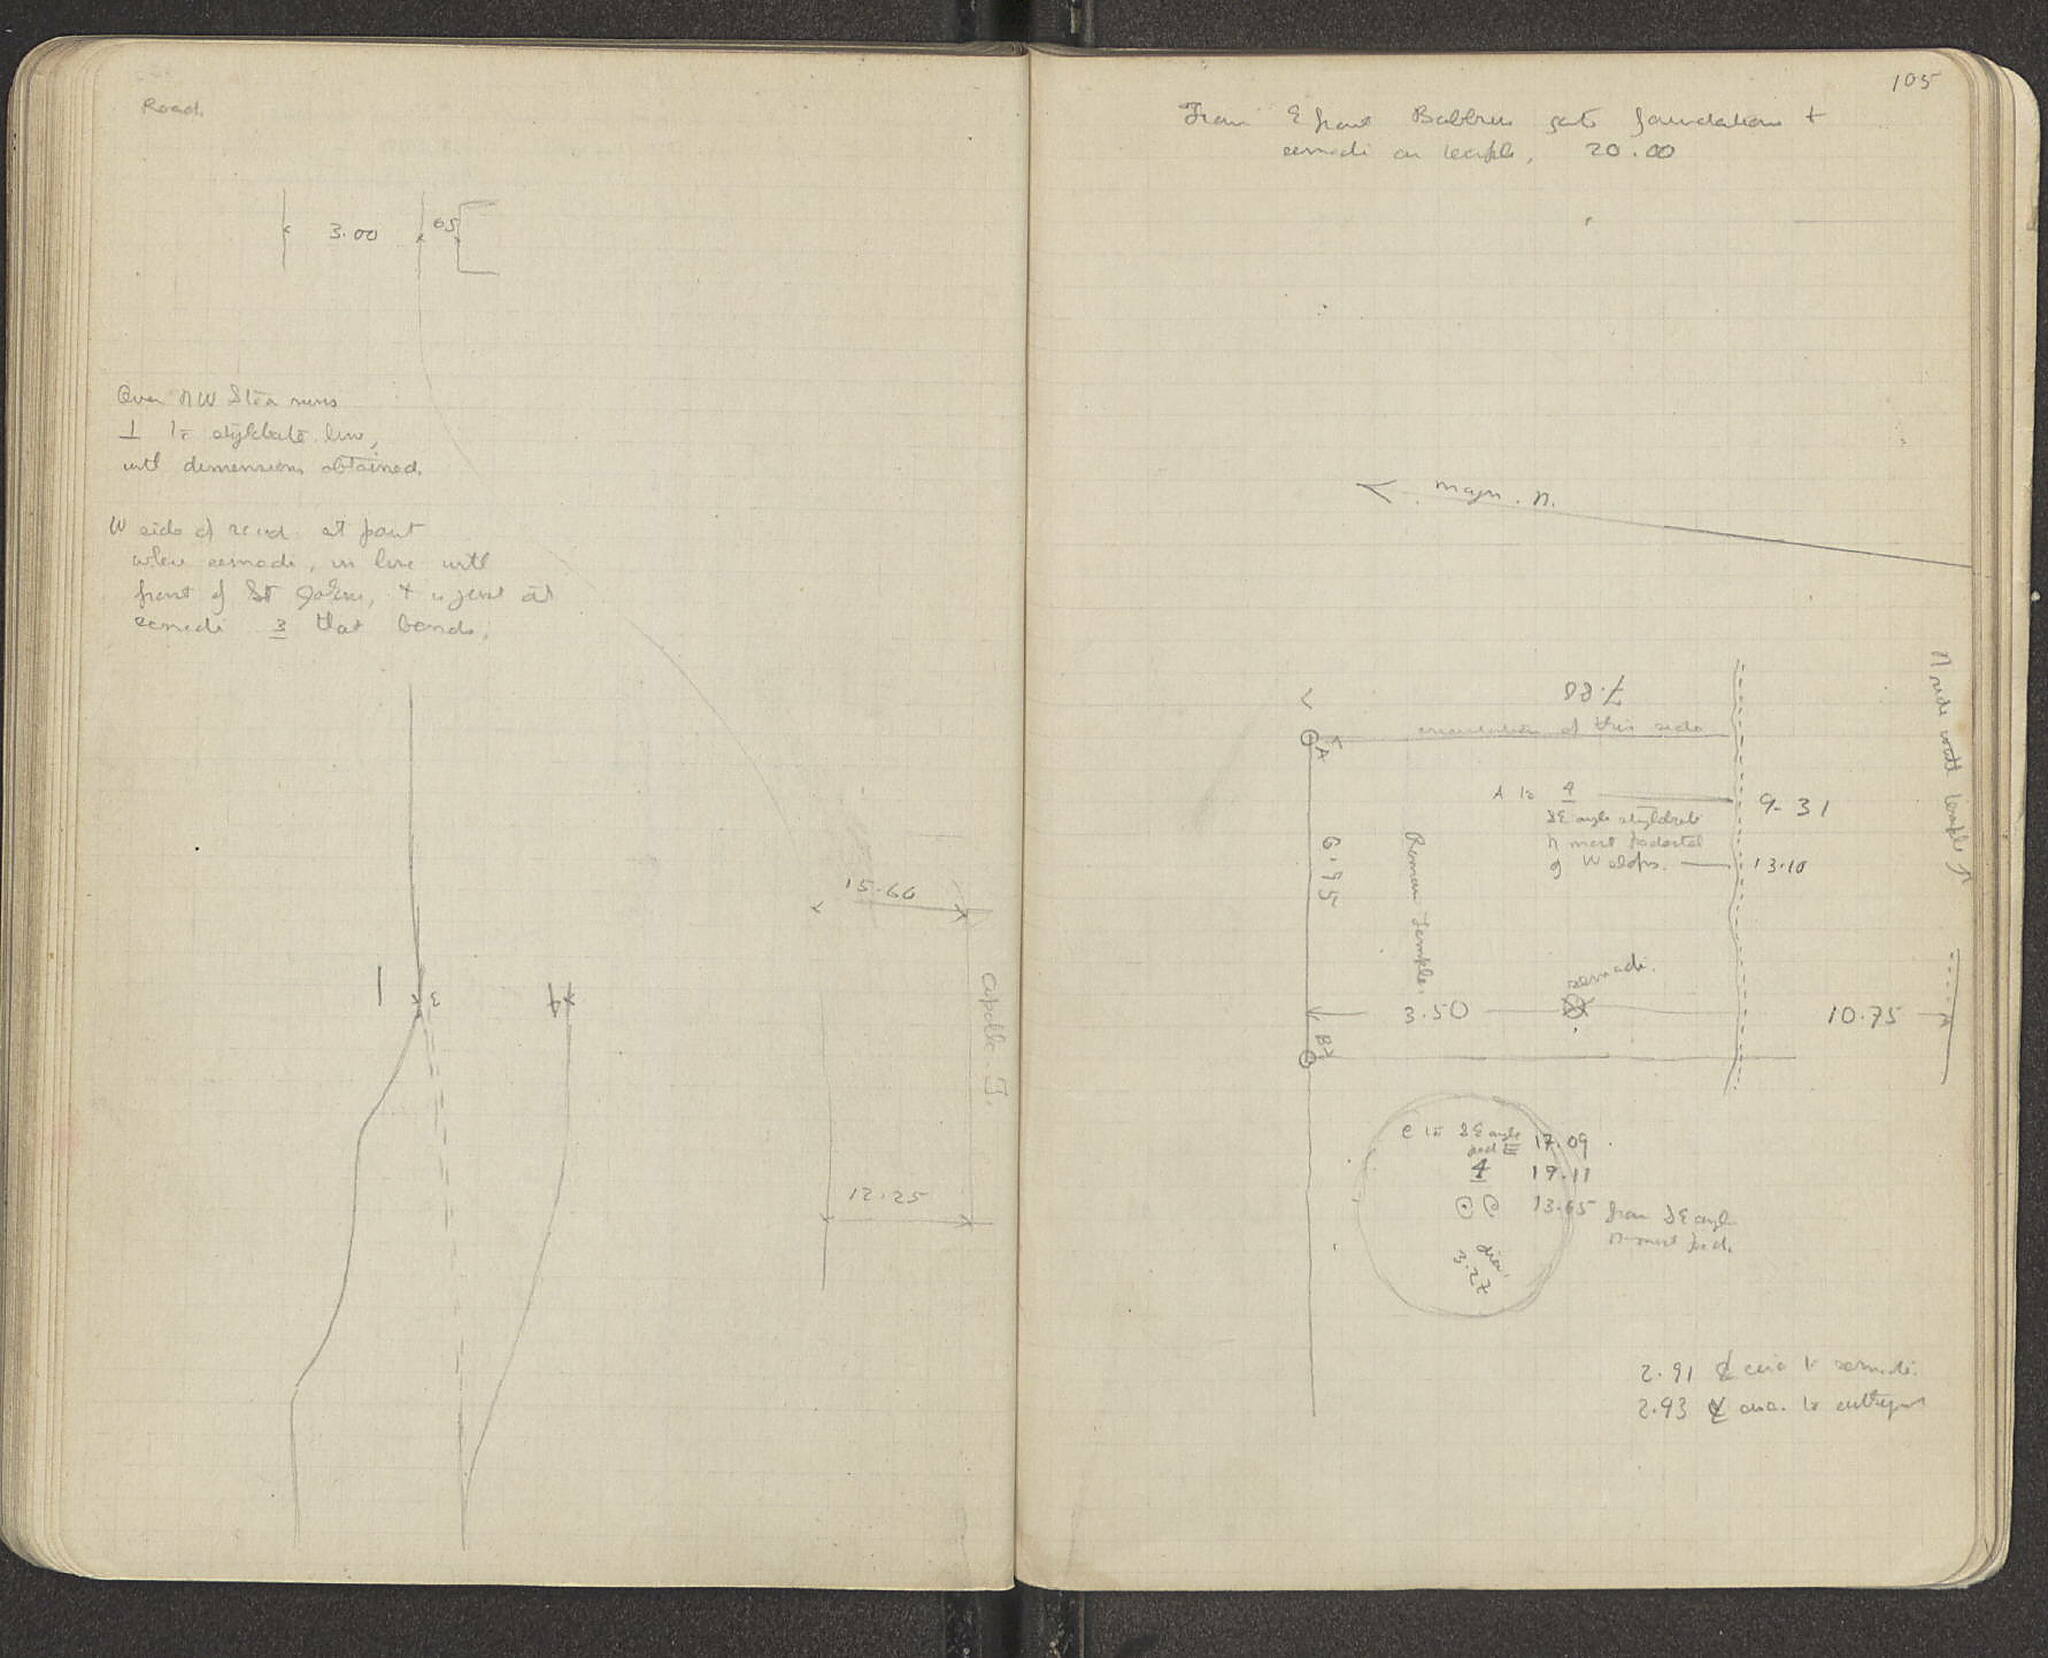 Road.
3.00
05
Over NW Stoa runs
⊥ to stylobate line,
with dimensions obtained.
W side of road at point
when semadi, in line with
front of St Johns, + is just at
semadi 3 that bends.
1
3
4
15.60
Apollo T.
12.25
105
From E front Babbius gate foundation +
semadi on temple, 20.00
magn. N.
N side wall temple
7.88
orientation of this side
A
A to 4
9.31
SE angle stylobate
N most pedestal
of W
13.10
6.95
Roman Temple.
semadi.
3.50
10.75
B
C to SE angle
ped III 17.09
4 19.11
13.65 from SE angle
N most ped.
dia.
3.27
2.91 ₵ to semadi.
2.93 ₵ to